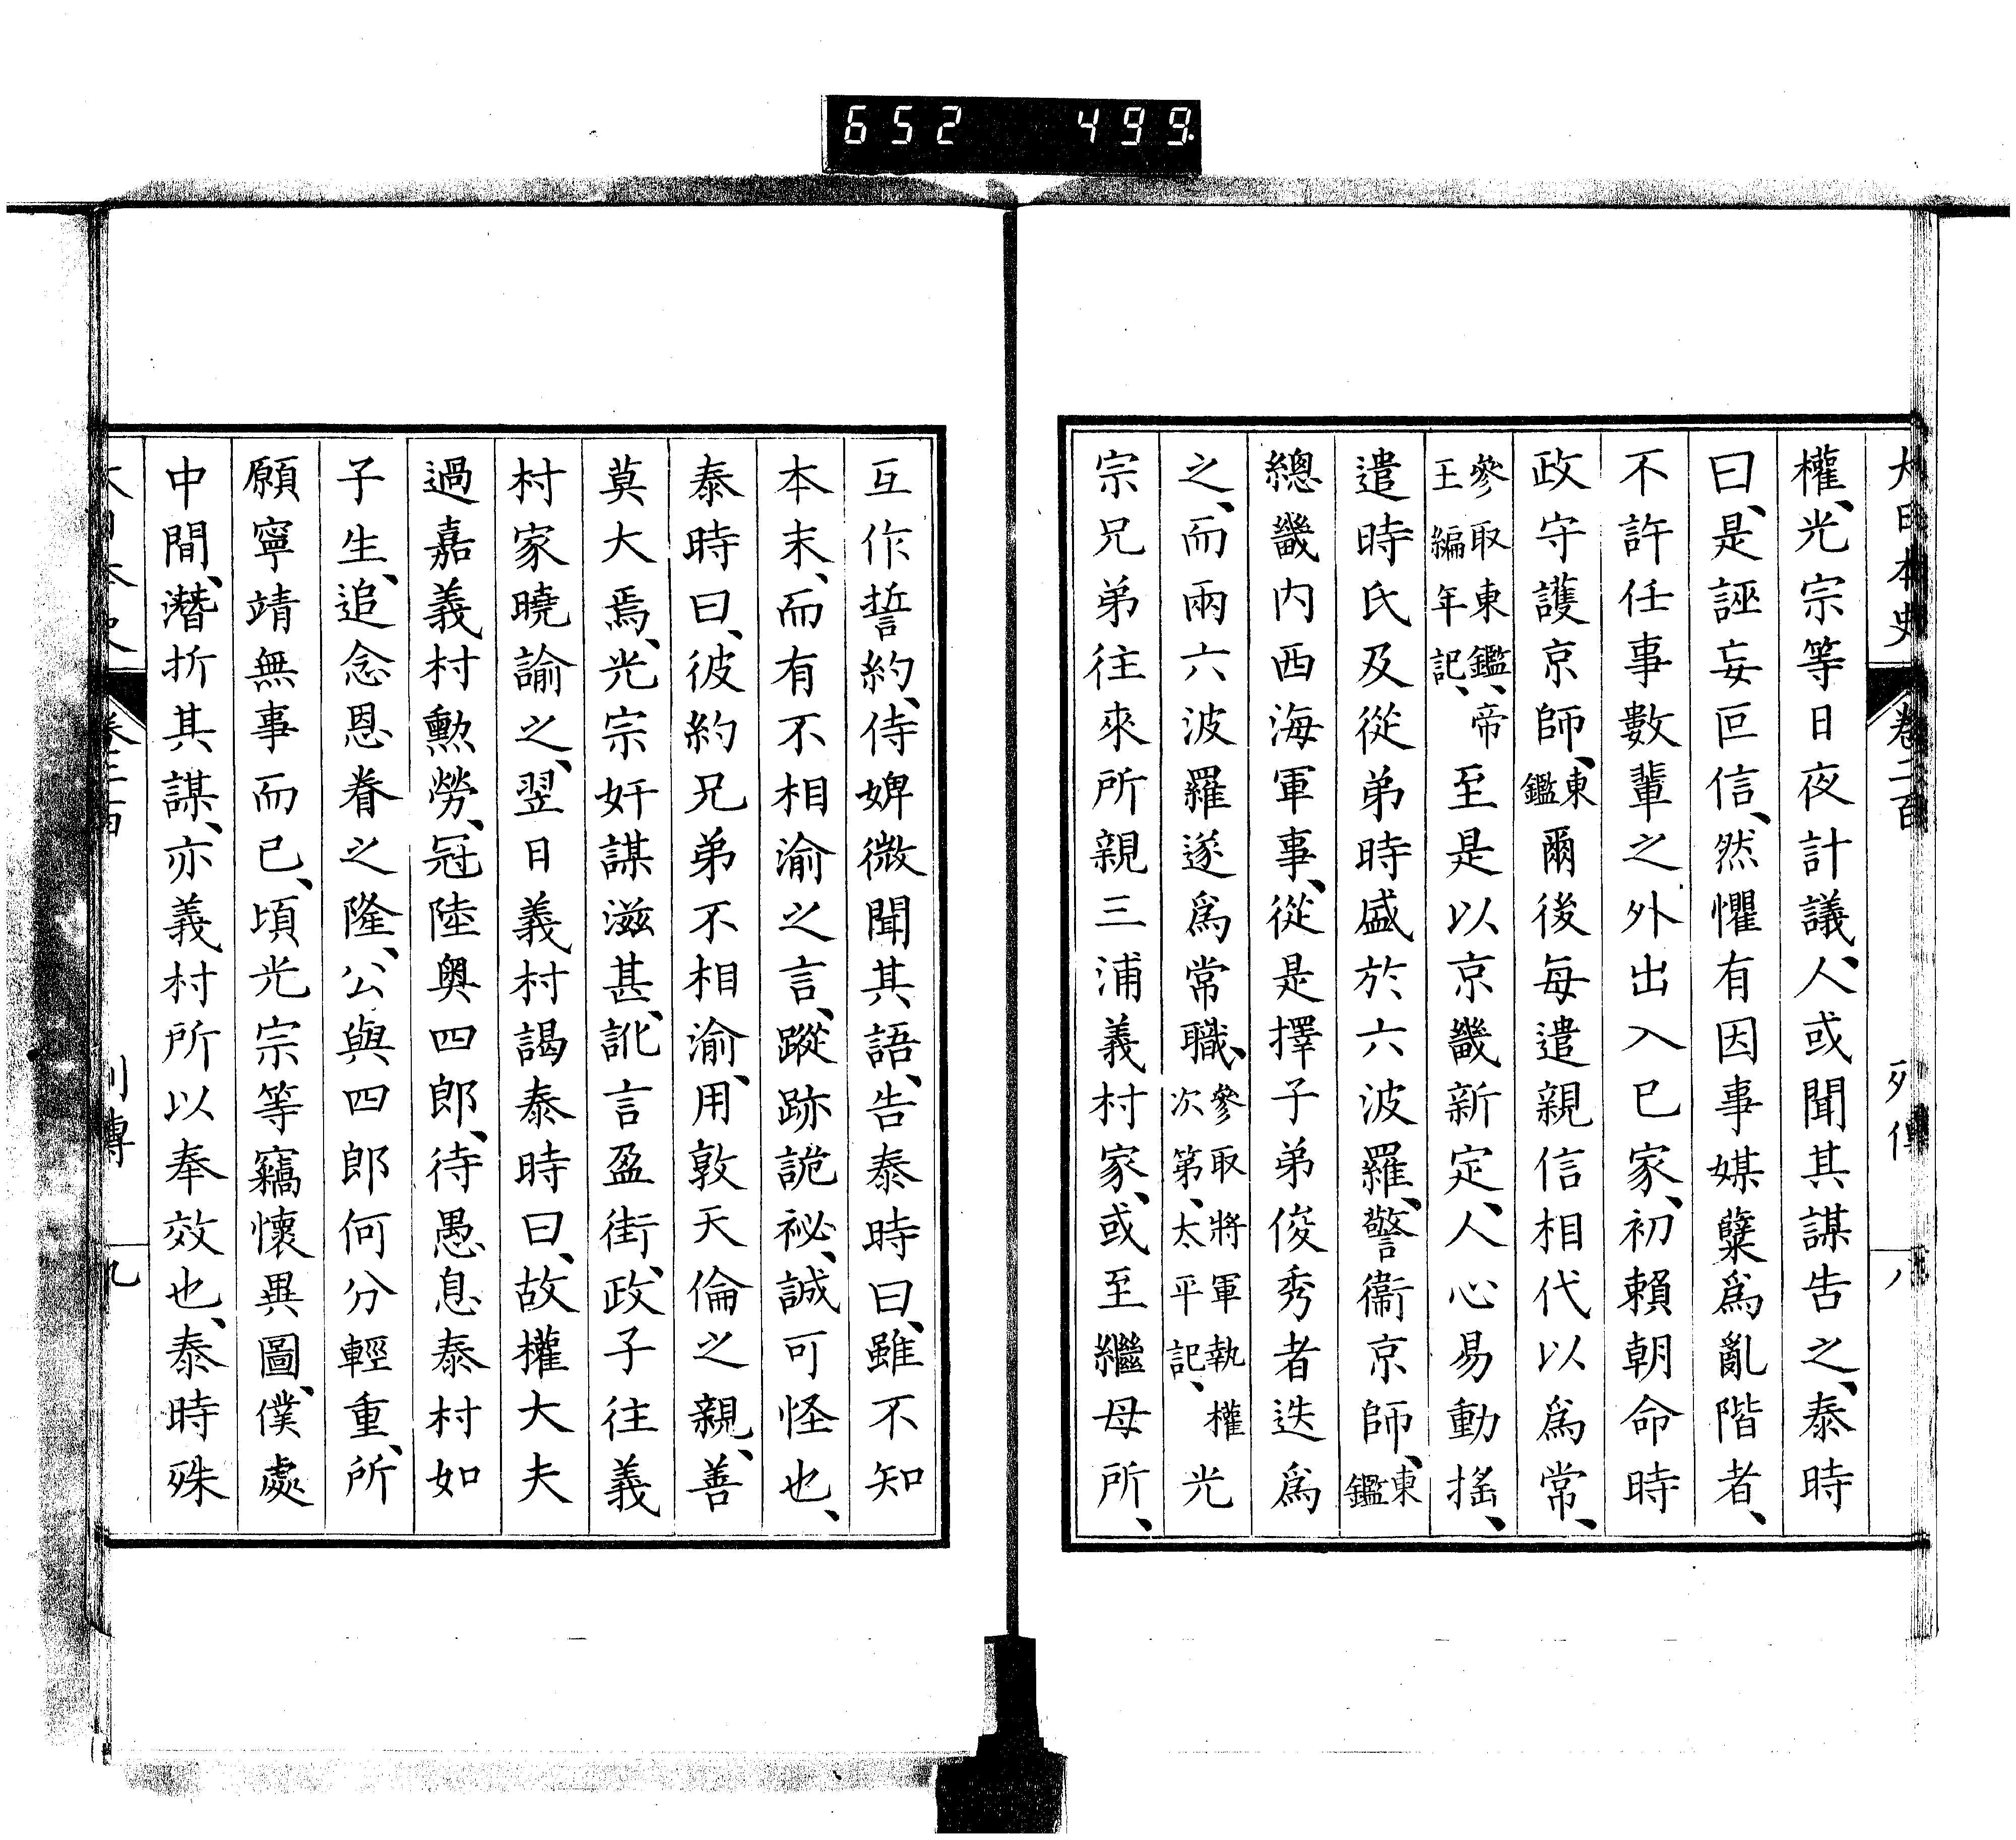 652 499.
大日本史 卷二百 列傳 八
權、光宗等日夜計議、人或聞其謀告之、泰時
曰、是誣妄叵信、然懼有因事媒糵爲亂階者、
不許任事數輩之外出入已家、初賴朝命時
政守護京師、東鑑爾後每遣親信相代以爲常、
參取東鑑、帝王編年記、至是以京畿新定、人心易動搖、
遣時氏及從弟時盛於六波羅、警衞京師、東鑑
總畿内西海軍事、從是擇子弟俊秀者迭爲
之、而兩六波羅遂爲常職、參取將軍執權次第、太平記、光
宗兄弟往來所親三浦義村家、或至繼母所、
互作誓約、侍婢微聞其語、告泰時曰、雖不知
本末、而有不相渝之言、蹤跡詭祕、誠可怪也、
泰時曰、彼約兄弟不相渝、用敦天倫之親、善
莫大焉、光宗奸謀滋甚、訛言盈街、政子往義
村家曉諭之、翌日義村謁泰時曰、故權大夫
過嘉義村勲勞、冠陸奥四郎、待愚息泰村如
子生、追念恩眷之隆、公與四郎何分輕重、所
願寧靖無事而已、頃光宗等竊懷異圖、僕處
中間、濳折其謀、亦義村所以奉效也、泰時殊
大日本史 卷二百 列傳 九